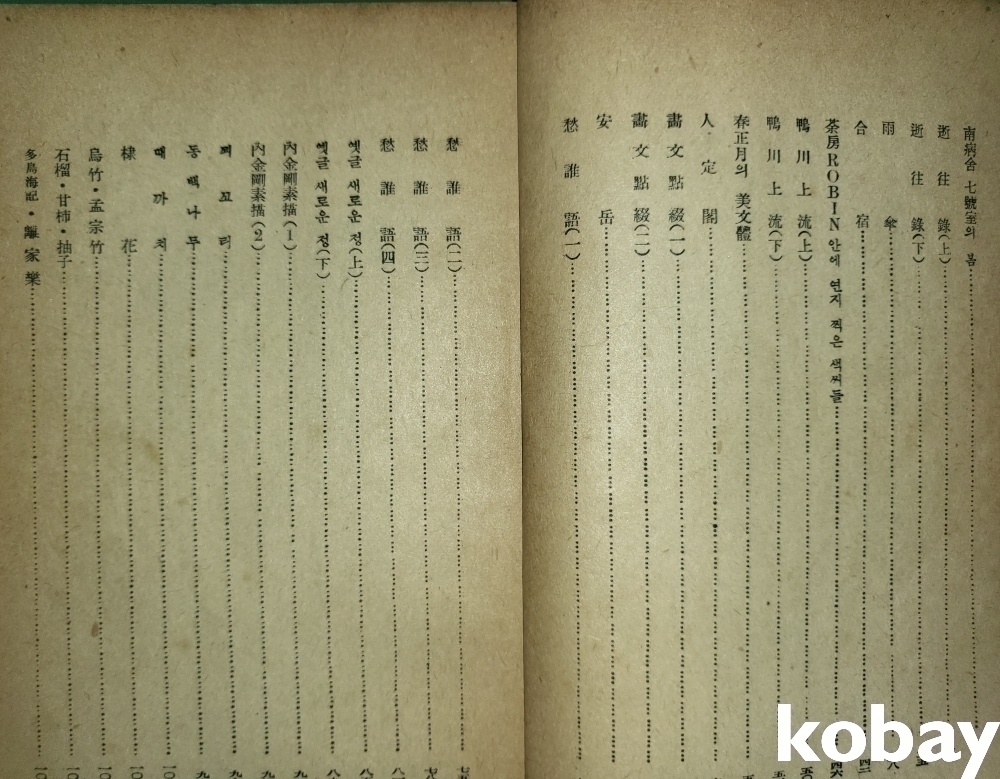 南病舍 七號室의 봄
逝往錄(上)
逝往錄(下) 五
雨傘 八
合宿 四三
茶房ROBIN 안에 연지 찍은 색씨들 四六
鴨川上流(上) 五
鴨川上流(下) 五
春正月의 美文體
人定閣
畵文點綴(一)
畵文點綴(二)
安岳
愁誰語(一)
愁誰語(二) 七
愁誰語(三)
愁誰語(四) 八
옛글 새로운 정(上) 八
옛글 새로운 정(下) 八
內金剛素描(1) 九
內金剛素描(2) 九
꾀꼬리 九
동백나무 九
때까치 一〇
棣花 一〇
烏竹・孟宗竹 一〇
石榴・甘柿・抽子 一〇
多島海記・離家樂 一〇
kobay